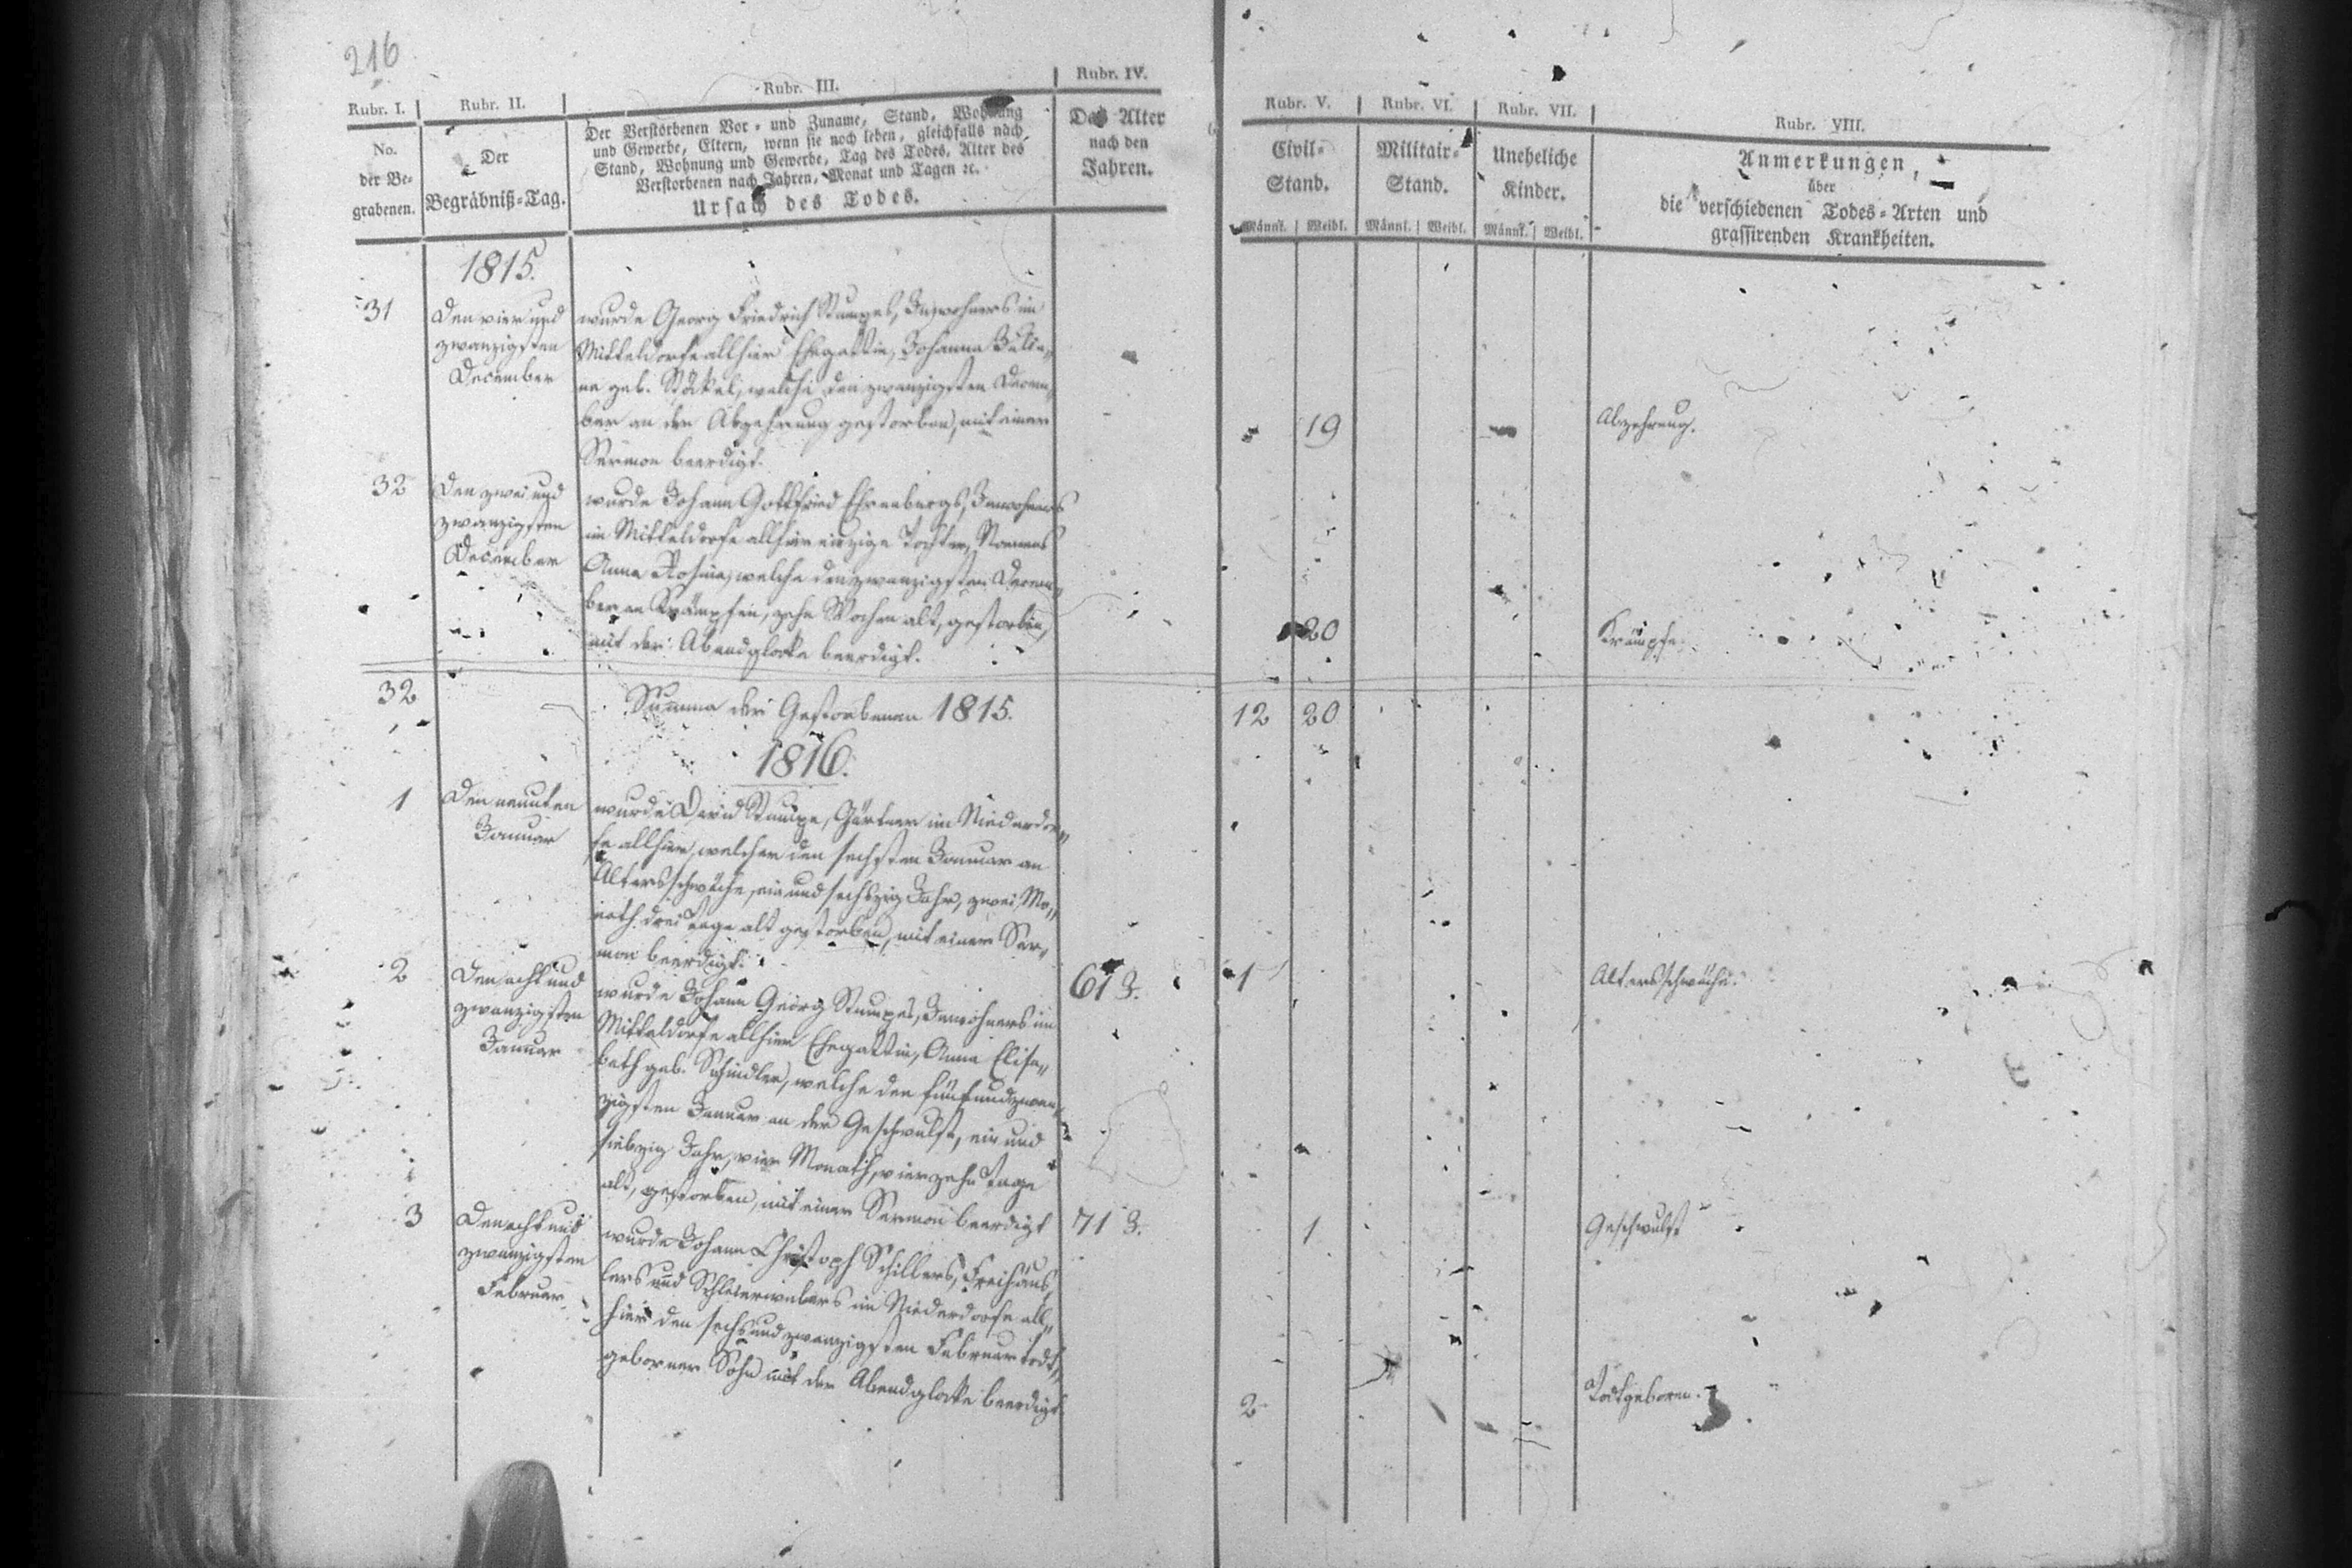 216
Rubr. I.
Rubr. II.
Rubr. III.
Rubr. IV.
Rubr. V.
Rubr. VI.
Rubr. VII.
Rubr. VIII.
No.
der Be-
grabenen.
Der
Begräbniß-Tag.
Der Verstorbenen Vor- und Zuname, Stand, Wohnung
und Gewerbe, Eltern, wenn sie noch leben, gleichfalls nach
Stand, Wohnung und Gewerbe, Tag des Todes, Alter des
Verstorbenen nach Jahren, Monat und Tagen ꝛc.
Ursach des Todes.
Das Alter
nach den
Jahren.
Civil-
Stand.
Militair-
Stand.
Uneheliche
Kinder.
Männl. Weibl. Männl. Weibl. Männl. Weibl.
Anmerkungen,
über
die verschiedenen Todes-Arten und
grassirenden Krankheiten.
1815.
31
Den vier und
zwanzigsten
December
wurde Georg Friedrich Stumpes, Inwohners im
Mitteldorfe allhier Ehegattin, Johanna Julia-
ne geb. welche den zwanzigsten Decem-
ber an der Abzehrung gestorben, mit einer
Sermon beerdigt.
19
Abzehrung.
32
Den zwei und
zwanzigsten
December
wurde Johann Gottfried Ehrenbergs, Inwohners
im Mitteldorfe allhier einzige Tochter, Namens
Anna Rosina, welche den zwanzigsten Decem-
ber an Krämpfen, zehn Wochen alt, gestorben,
mit der Abendglocke beerdigt.
20
Krämpfe.
32
Summa der Gestorbenen 1815.
12 20
1816.
1
Den neunten
Januar
wurde David Stumpe, Gärtner im Niederdor-
fe allhier, welcher den sechsten Januar an
Altersschwäche, ein und sechszig Jahr, zwei Mo-
nath drei Tage alt gestorben, mit einer Ser-
mon beerdigt.
61 J.
1
Altersschwäche.
2
Den acht und
zwanzigsten
Januar
wurde Johann Georg Stumpes, Inwohners im
Mitteldorfe allhier Ehegattin, Anna Elisa-
beth geb. Schindler, welche den fünfundzwan-
zigsten Januar an der Geschwulst, ein und
siebzig Jahr, vier Monath, vierzehn Tage
alt, gestorben, mit einer Sermon beerdigt
71 J.
1
Geschwulst
3
Den acht und
zwanzigsten
Februar
wurde Johann Christoph Schillers, Freihäus-
lers und Schleierwebers im Niederdorfe all-
hier den sechsundzwanzigsten Februar todt-
geborner Sohn mit der Abendglocke beerdigt.
2
Todtgeboren.